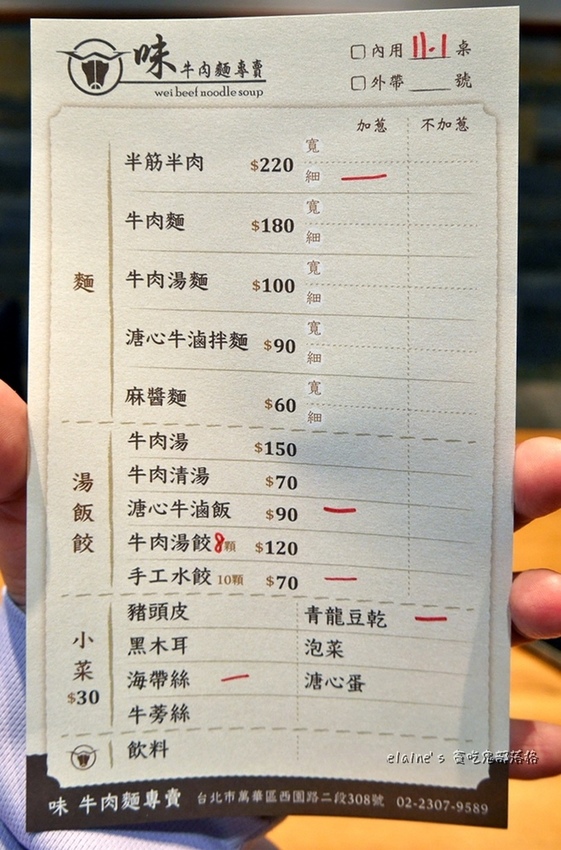 味 牛肉麵專賣
wei beef noodle soup
內用 11.1 桌
外帶 號
加蔥 不加蔥
麵
半筋半肉 $220 寬 細
牛肉麵 $180 寬 細
牛肉湯麵 $100 寬 細
溏心牛滷拌麵 $90 寬 細
麻醬麵 $60 寬 細
湯飯餃
牛肉湯 $150
牛肉清湯 $70
溏心牛滷飯 $90
牛肉湯餃 8顆 $120
手工水餃 10顆 $70
小菜 $30
豬頭皮 青龍豆乾
黑木耳 泡菜
海帶絲 溏心蛋
牛蒡絲
飲料
elaine's 貪吃鬼部落格
味 牛肉麵專賣 台北市萬華區西園路二段308號 02-2307-9589